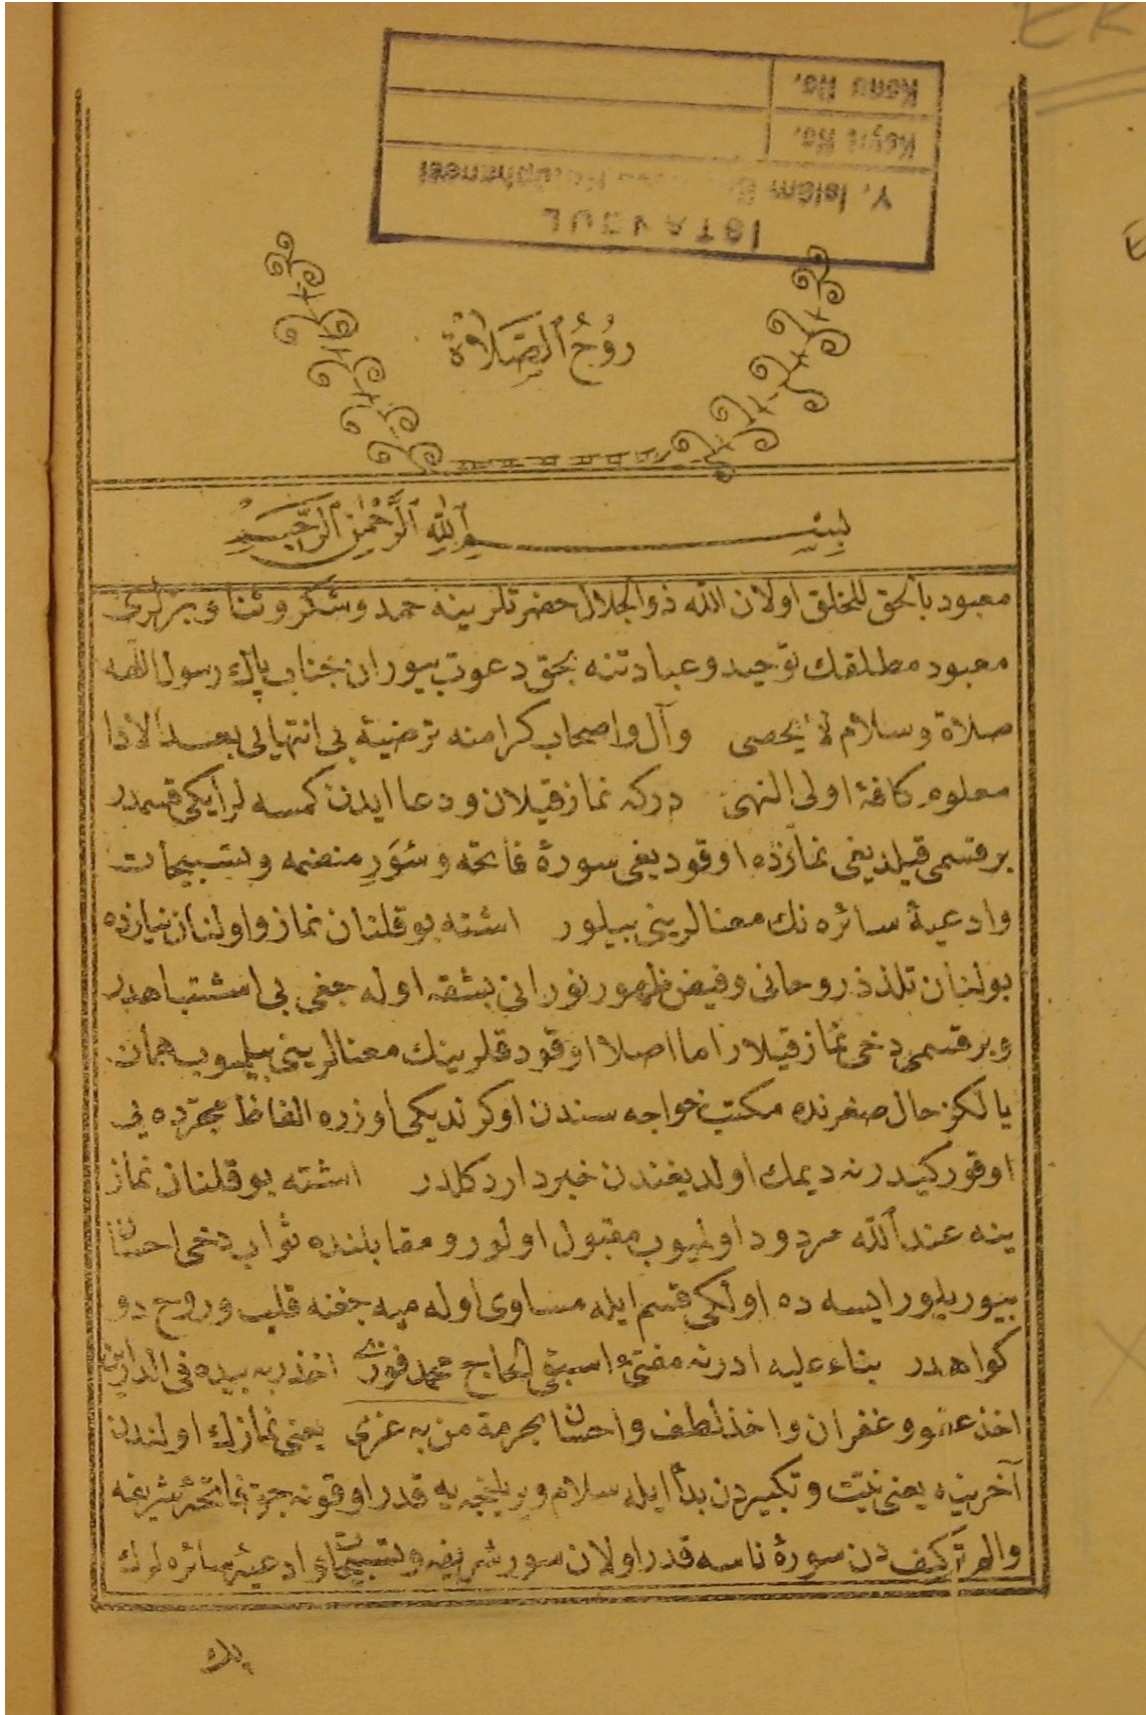 ISTANBUL
Y. İslâm
Kayıt No.
Konu No.
رُوحُ الصَّلَاةِ
بِسْمِ اللّٰهِ الرَّحْمٰنِ الرَّحِيمِ
معبود بالحق للخلق اولان الله ذوالجلال حضرتلرينه حمد وشكر وثنا و
معبود مطلقك توحيد وعبادتنه بحق دعوت بيوران جناب پاك رسول اللهه
صلاة وسلام لا يحصى وآل واصحاب كرامنه ترضيهٔ بى انتهايى بعد الادا
معلوم كافهٔ اولى النهى دركه نماز قيلان ودعا ايدن كمسه لر ايكى قسمدر
بر قسمى قيلديغى نمازده اوقوديغى سورهٔ فاتحه وسُوَرِ منضمه وتسبيحات
وادعيهٔ سائره نك معنالرينى بيلور اشته بو قلنان نماز واولنان نيازده
بولنان تلذذ روحانى وفيض ظهور نورانى بشقه اوله جغى بى اشتباهدر
وبر قسمى دخى نماز قيلار اما اصلا اوقودقلرينك معنالرينى بيلميوب همان
يالكز حال صغرنده مكتب خواجه سندن اوكرنديكى اوزره الفاظ مجرده يى
اوقور كيدر نه ديمك اولديغندن خبردار دكلدر اشته بو قلنان نماز
ينه عندالله مردود اولميوب مقبول اولور ومقابلنده ثواب دخى احسان
بيوريلور ايسه ده اولكى قسم ايله مساوى اوله ميه جغنه قلب وروح دو
كواهدر بناء عليه ادرنه مفتئ اسبقى الحاج محمد فوزى اخذ ربه بيده فى الدارين
اخذ عفو وغفران واخذ لطف واحسان بحرمة من به عزى يعنى نمازك اولندن
آخرينه يعنى نيت وتكبيردن بدأ ايله سلام ويريلنجه يه قدر اوقونه جق فاتحهٔ شريفه
والم تركيف دن سورهٔ ناسه قدر اولان سور شريفه وتسبيحات وادعيهٔ سائره لرك
پك